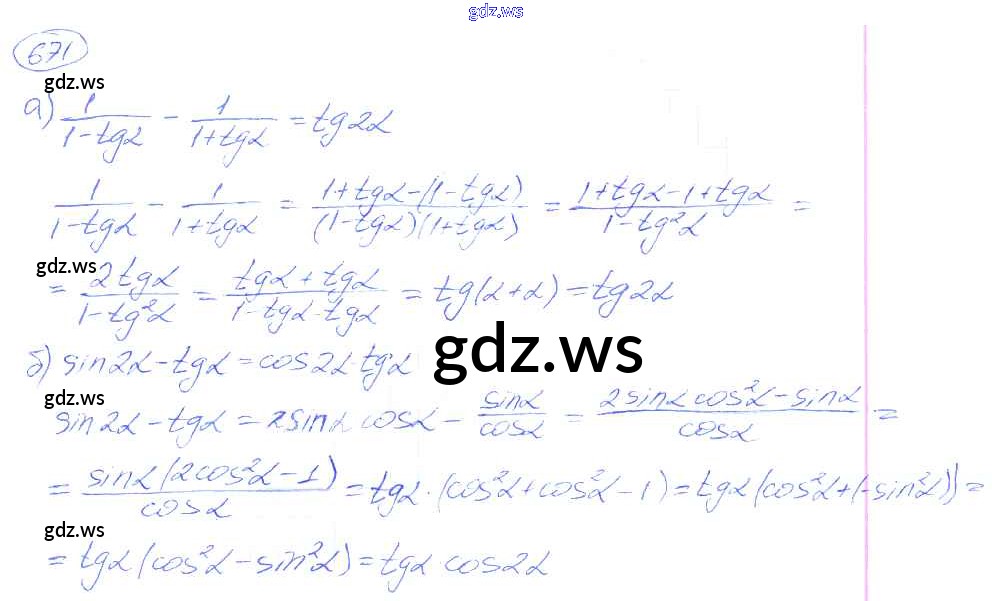 gdz.ws
671
gdz.ws
а) 1/(1-tgα) - 1/(1+tgα) = tg2α
1/(1-tgα) - 1/(1+tgα) = (1+tgα-(1-tgα))/((1-tgα)(1+tgα)) = (1+tgα-1+tgα)/(1-tg²α) =
gdz.ws
= 2tgα/(1-tg²α) = (tgα+tgα)/(1-tgα·tgα) = tg(α+α) = tg2α
б) sin2α-tgα=cos2α·tgα
gdz.ws
gdz.ws
sin2α-tgα = 2sinα cosα - sinα/cosα = (2sinα cos²α-sinα)/cosα =
= sinα(2cos²α-1)/cosα = tgα·(cos²α+cos²α-1) = tgα(cos²α+(-sin²α)) =
gdz.ws
= tgα(cos²α-sin²α) = tgα cos2α